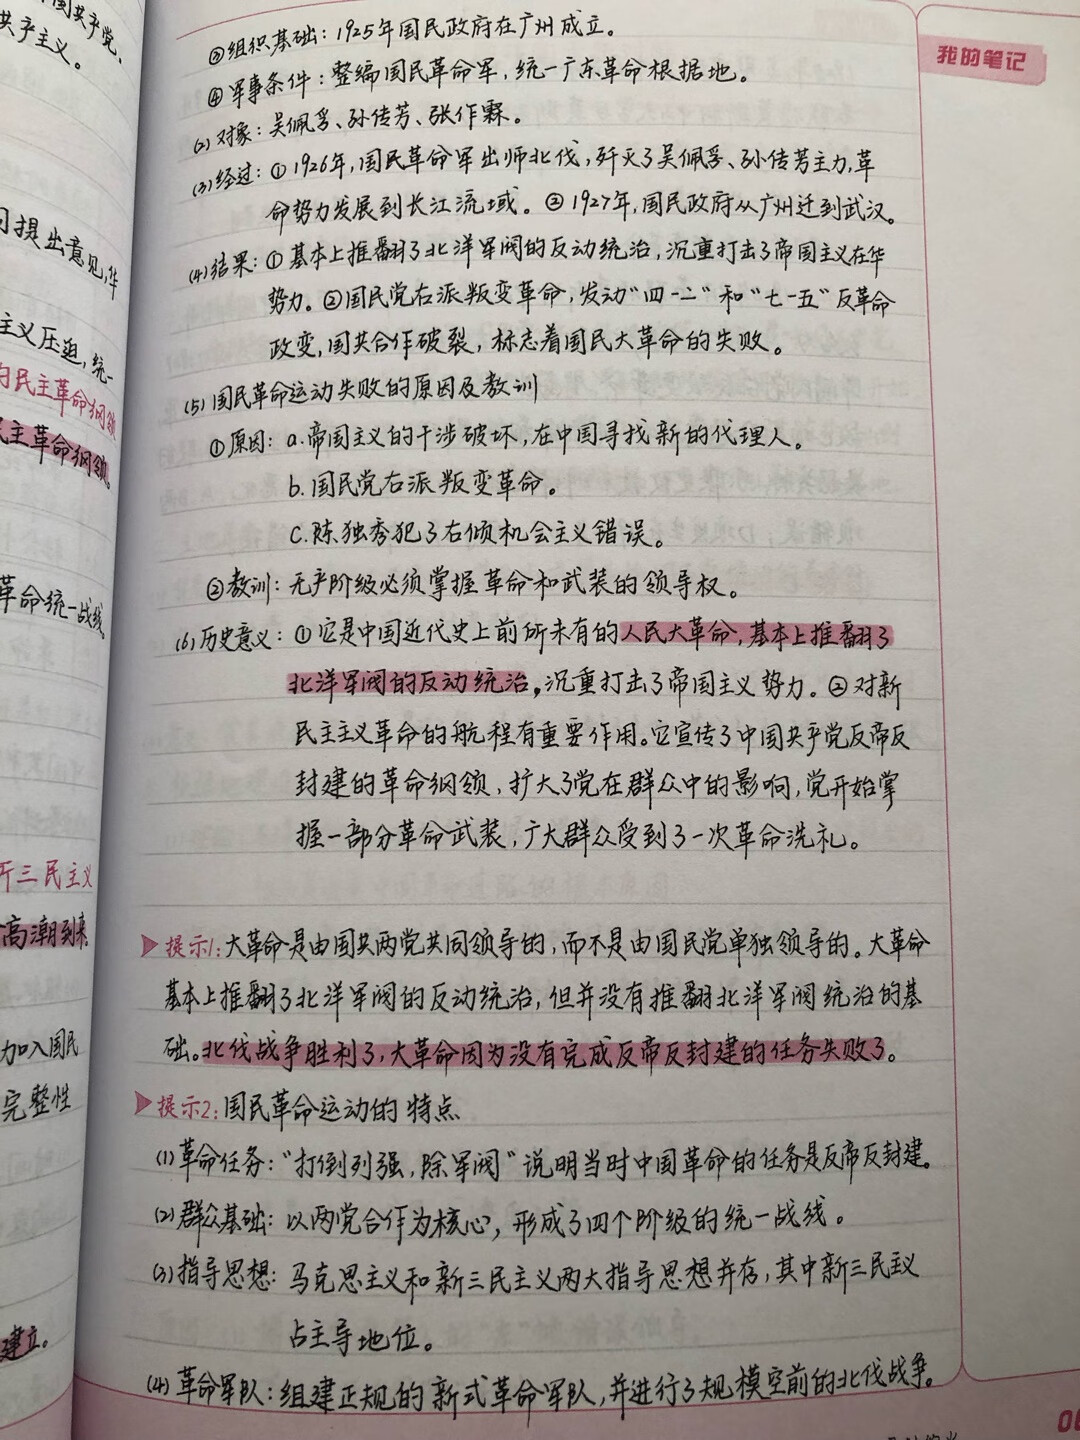 国共产党、
共产主义。
习提出意见,华
主义压迫,统一
的民主革命纲领
民主革命纲领。
革命统一战线。
所三民主义
高潮到来
加入国民
完整性
建立。
我的笔记
③组织基础:1925年国民政府在广州成立。
④军事条件:整编国民革命军,统一广东革命根据地。
(2)对象:吴佩孚、孙传芳、张作霖。
(3)经过:①1926年,国民革命军出师北伐,歼灭了吴佩孚、孙传芳主力,革
命势力发展到长江流域。②1927年,国民政府从广州迁到武汉。
(4)结果:①基本上推翻了北洋军阀的反动统治,沉重打击了帝国主义在华
势力。②国民党右派叛变革命,发动“四·一二”和“七·一五”反革命
政变,国共合作破裂,标志着国民大革命的失败。
(5)国民革命运动失败的原因及教训
①原因:a.帝国主义的干涉破坏,在中国寻找新的代理人。
b.国民党右派叛变革命。
C.陈独秀犯了右倾机会主义错误。
②教训:无产阶级必须掌握革命和武装的领导权。
(6)历史意义:①它是中国近代史上前所未有的人民大革命,基本上推翻了
北洋军阀的反动统治,沉重打击了帝国主义势力。②对新
民主主义革命的航程有重要作用。它宣传了中国共产党反帝反
封建的革命纲领,扩大了党在群众中的影响,党开始掌
握一部分革命武装,广大群众受到了一次革命洗礼。
提示1:大革命是由国共两党共同领导的,而不是由国民党单独领导的。大革命
基本上推翻了北洋军阀的反动统治,但并没有推翻北洋军阀统治的基
础。北伐战争胜利了,大革命因为没有完成反帝反封建的任务失败了。
提示2:国民革命运动的特点
(1)革命任务:“打倒列强,除军阀”说明当时中国革命的任务是反帝反封建。
(2)群众基础:以两党合作为核心,形成了四个阶级的统一战线。
(3)指导思想:马克思主义和新三民主义两大指导思想并存,其中新三民主义
占主导地位。
(4)革命军队:组建正规的新式革命军队,并进行了规模空前的北伐战争。